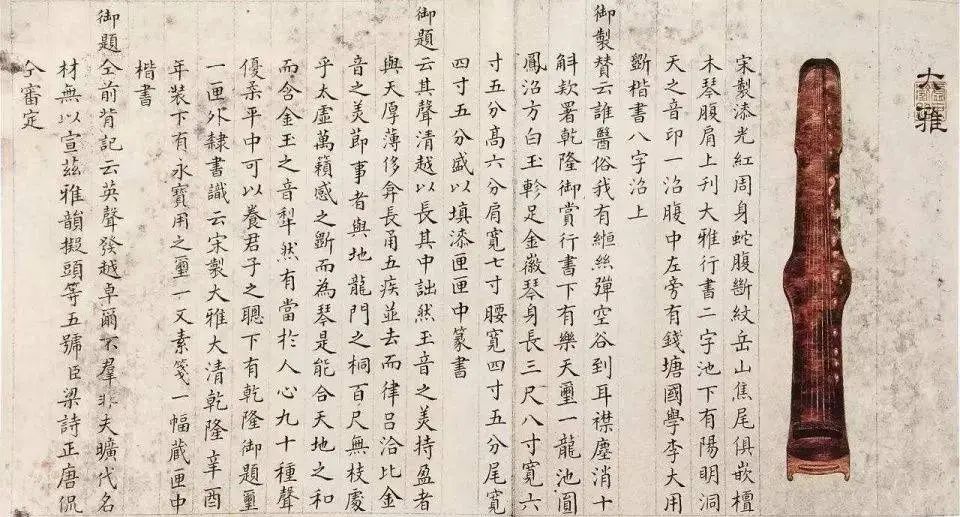 大雅
宋製漆光紅周身蛇腹斷紋岳山焦尾俱嵌檀
木琴腹肩上刊大雅行書二字池下有陽明洞
天之音印一沼腹中左旁有錢塘國學李大用
斵楷書八字沼上
御製贊云誰醫俗我有絙絲彈空谷到耳襟塵消十
斛欵署乾隆御賞行書下有樂天璽一龍池圓
鳳沼方白玉軫足金徽琴身長三尺八寸寬六
寸五分高六分肩寬七寸腰寬四寸五分尾寬
四寸五分盛以填漆匣匣中篆書
御題云其聲清越以長其中詘然玉音之美持盈者
與天厚薄侈弇長甬五疾並去而律呂洽比金
音之美節事者與地龍門之桐百尺無枝處
乎太虛萬籟感之斵而為琴是能合天地之和
而含金玉之音犁然有當於人心九十種聲
優柔平中可以養君子之聰下有乾隆御題璽
一匣外隸書識云宋製大雅大清乾隆辛酉
年裝下有永寶用之璽一又素箋一幅藏匣中
楷書
御題仝前背記云英聲發越卓爾不羣非夫曠代名
材無以宣茲雅韻擬頭等五號臣梁詩正唐侃
仝審定